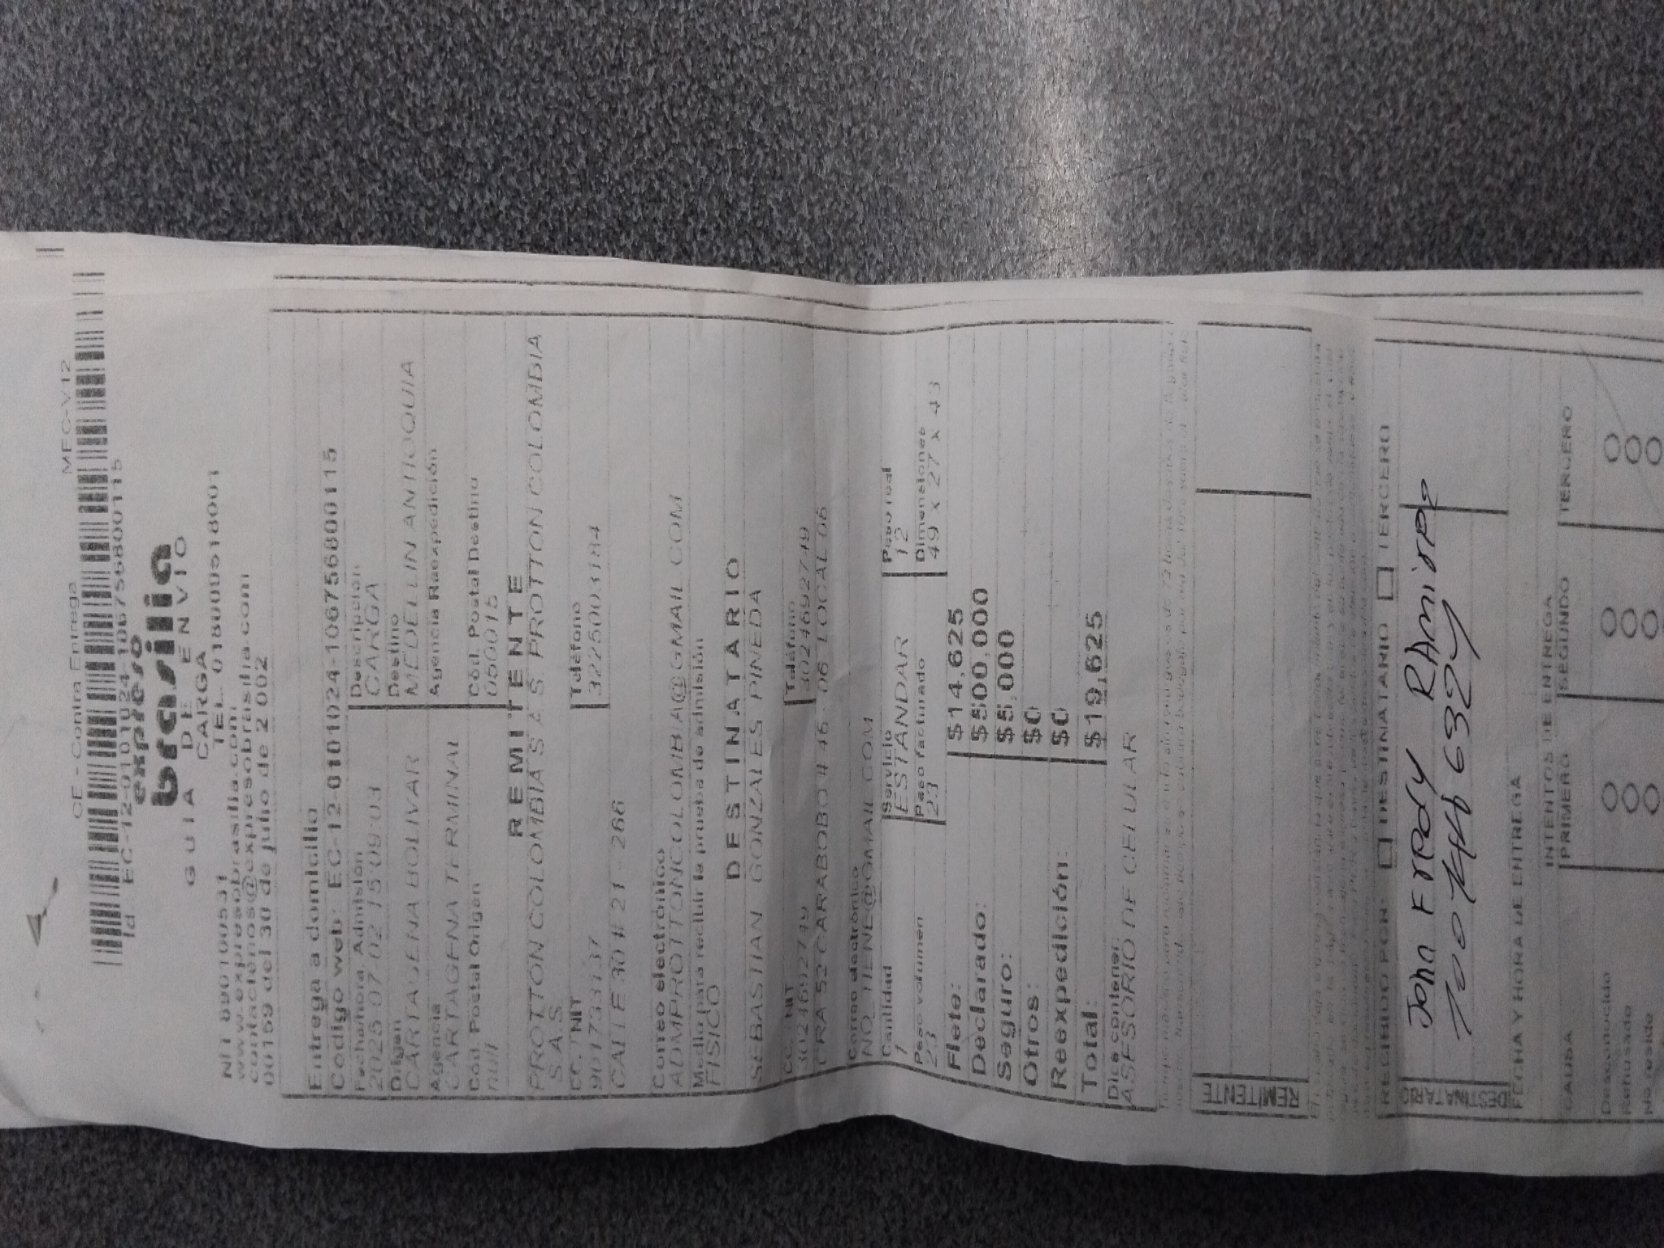 CE - Contra Entrega MEC-V12
Id EC-12-0101024-106756800115
expreso
brasilia
GUIA DE ENVIO
CARGA
NIT 890100531 TEL. 018000518001
www.expresobrasilia.com
contactenos@expresobrasilia.com
00159 del 30 de julio de 2 002
Entrega a domicilio
Codigo web: EC-12-0101024-106756800115
Fecha/hora Admisión Descripcion
2025 07 02 15:09:03 CARGA
Origen Destino
CARTAGENA BOLIVAR MEDELLIN ANTIOQUIA
Agencia Agencia Reexpedición
CARTAGENA TERMINAL
Cód. Postal Origen Cód. Postal Destino
null 050015
REMITENTE
PROTTON COLOMBIA S A S PROTTON COLOMBIA
S A S
CC. NIT Teléfono
901733137 3225003184
CALLE 30 # 21 - 266
Correo electrónico
ADMPROTTONCOLOMBIA@GMAIL.COM
Medio para recibir la prueba de admisión
FISICO
DESTINATARIO
SEBASTIAN GONZALES PINEDA
CC. NIT Teléfono
3024692749 3024692749
CRA 52 CARABOBO # 46 06 LOCAL 06
Correo electrónico
NO_TIENE@GMAIL.COM
Cantidad Servicio Peso real
1 ESTANDAR 12
Peso volumen Peso facturado Dimensiones
23 23 49 x 27 x 43
Flete: $14,625
Declarado: $500,000
Seguro: $5,000
Otros: $0
Reexpedición: $0
Total: $19,625
Dice contener:
ASESORIO DE CELULAR
REMITENTE
RECIBIDO POR: DESTINATARIO TERCERO
DESTINATARIO
John Fredy Ramirez
FECHA Y HORA DE ENTREGA
INTENTOS DE ENTREGA
CAUSA PRIMERO SEGUNDO TERCERO
Desconocido
Rehusado
No reside